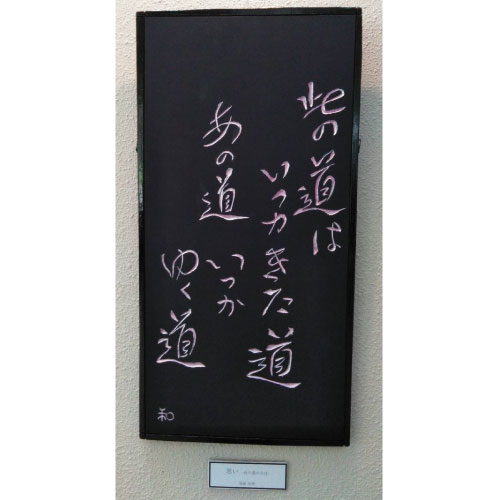 此の道は
いつかきた道
あの道
いつか
ゆく道
和